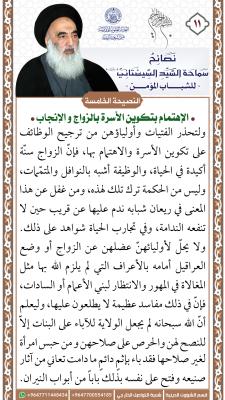 ١١
نصائح
سماحة السيد السيستاني
للشباب المؤمن
النصيحة الخامسة
• الإهتمام بتكوين الأسرة بالزواج والإنجاب •
ولتحذر الفتيات وأولياؤهن من ترجيح الوظائف
على تكوين الأسرة والاهتمام بها، فإنّ الزواج سنّة
أكيدة في الحياة، والوظيفة أشبه بالنوافل والمتمّمات،
وليس من الحكمة ترك تلك لهذه، ومن غفل عن هذا
المعنى في ريعان شبابه ندم عليها عن قريب حين لا
تنفعه الندامة، وفي تجارب الحياة شواهد على ذلك.
ولا يحلّ لأوليائهنّ عضلهن عن الزواج أو وضع
العراقيل أمامه بالأعراف التي لم يلزم الله بها مثل
المغالاة في المهور والانتظار لبني الأعمام أو السادات،
فإنّ في ذلك مفاسد عظيمة لا يطلعون عليها، وليعلم
أنّ الله سبحانه لم يجعل الولاية للآباء على البنات إلّا
للنصح لهن والحرص على صلاحهن ومن حبس امرأة
لغير صلاحها فقد باء بإثم دائم ما دامت تعاني من آثار
صنيعه وفتح على نفسه بذلك باباً من أبواب النيران.
قسم الشؤون الدينية
شعبة التواصل الخارجي
+9647700554185
+9647711468434